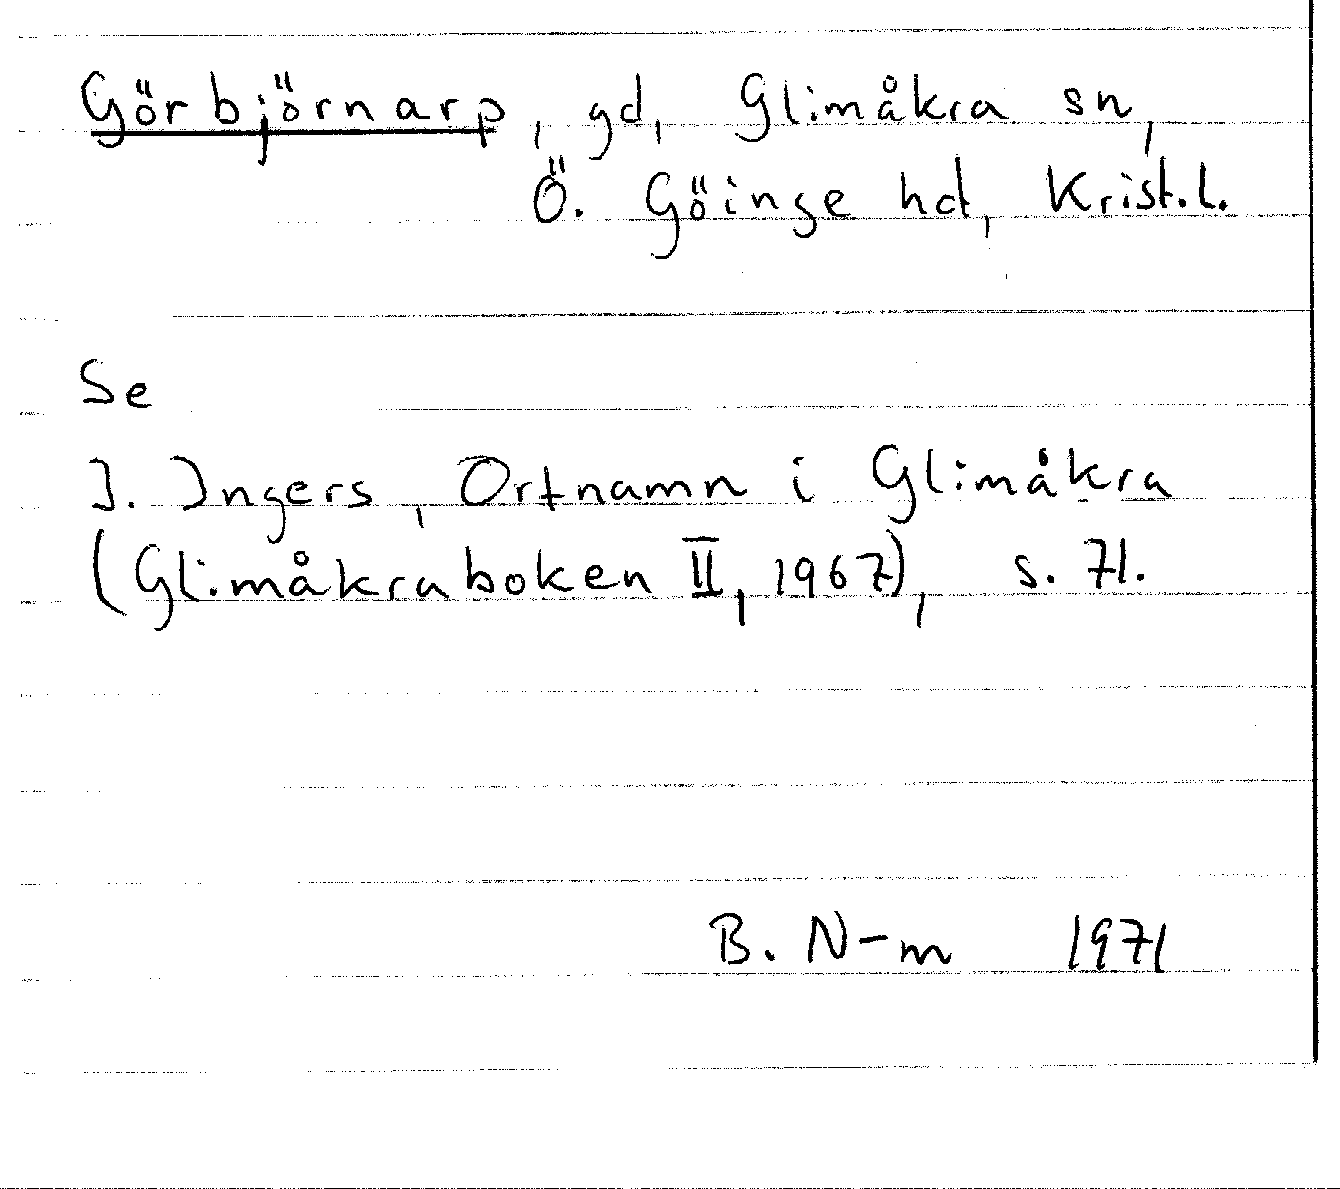 Görbjörnarp, gd, Glimåkra sn,
Ö. Göinge hd, Krist.l.
Se
I. Ingers, Ortnamn i Glimåkra
(Glimåkraboken II, 1967), s. 71.
B. N-m 1971